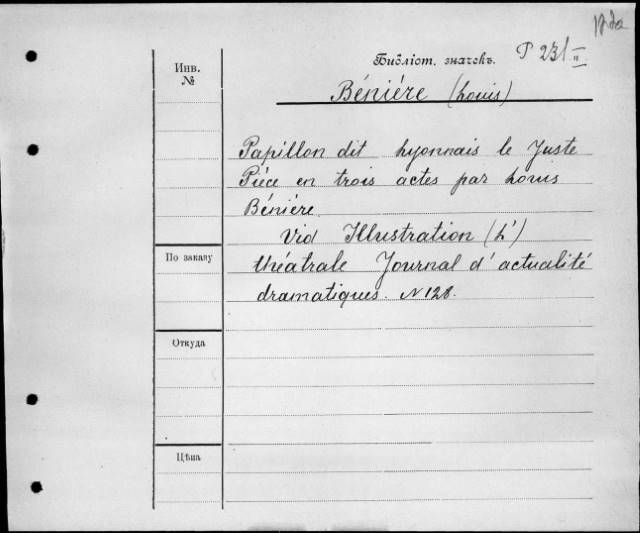 Инв.
№
Библіот. значекъ. P 231 II
Béniére (Louis)
Papillon dit Lyonnais le Juste
Piéce en trois actes par Louis
Béniére.
Vid Illustration (L')
théatrale Journal d'actualité
dramatiques. N 128.
По заказу
Откуда
Цѣна